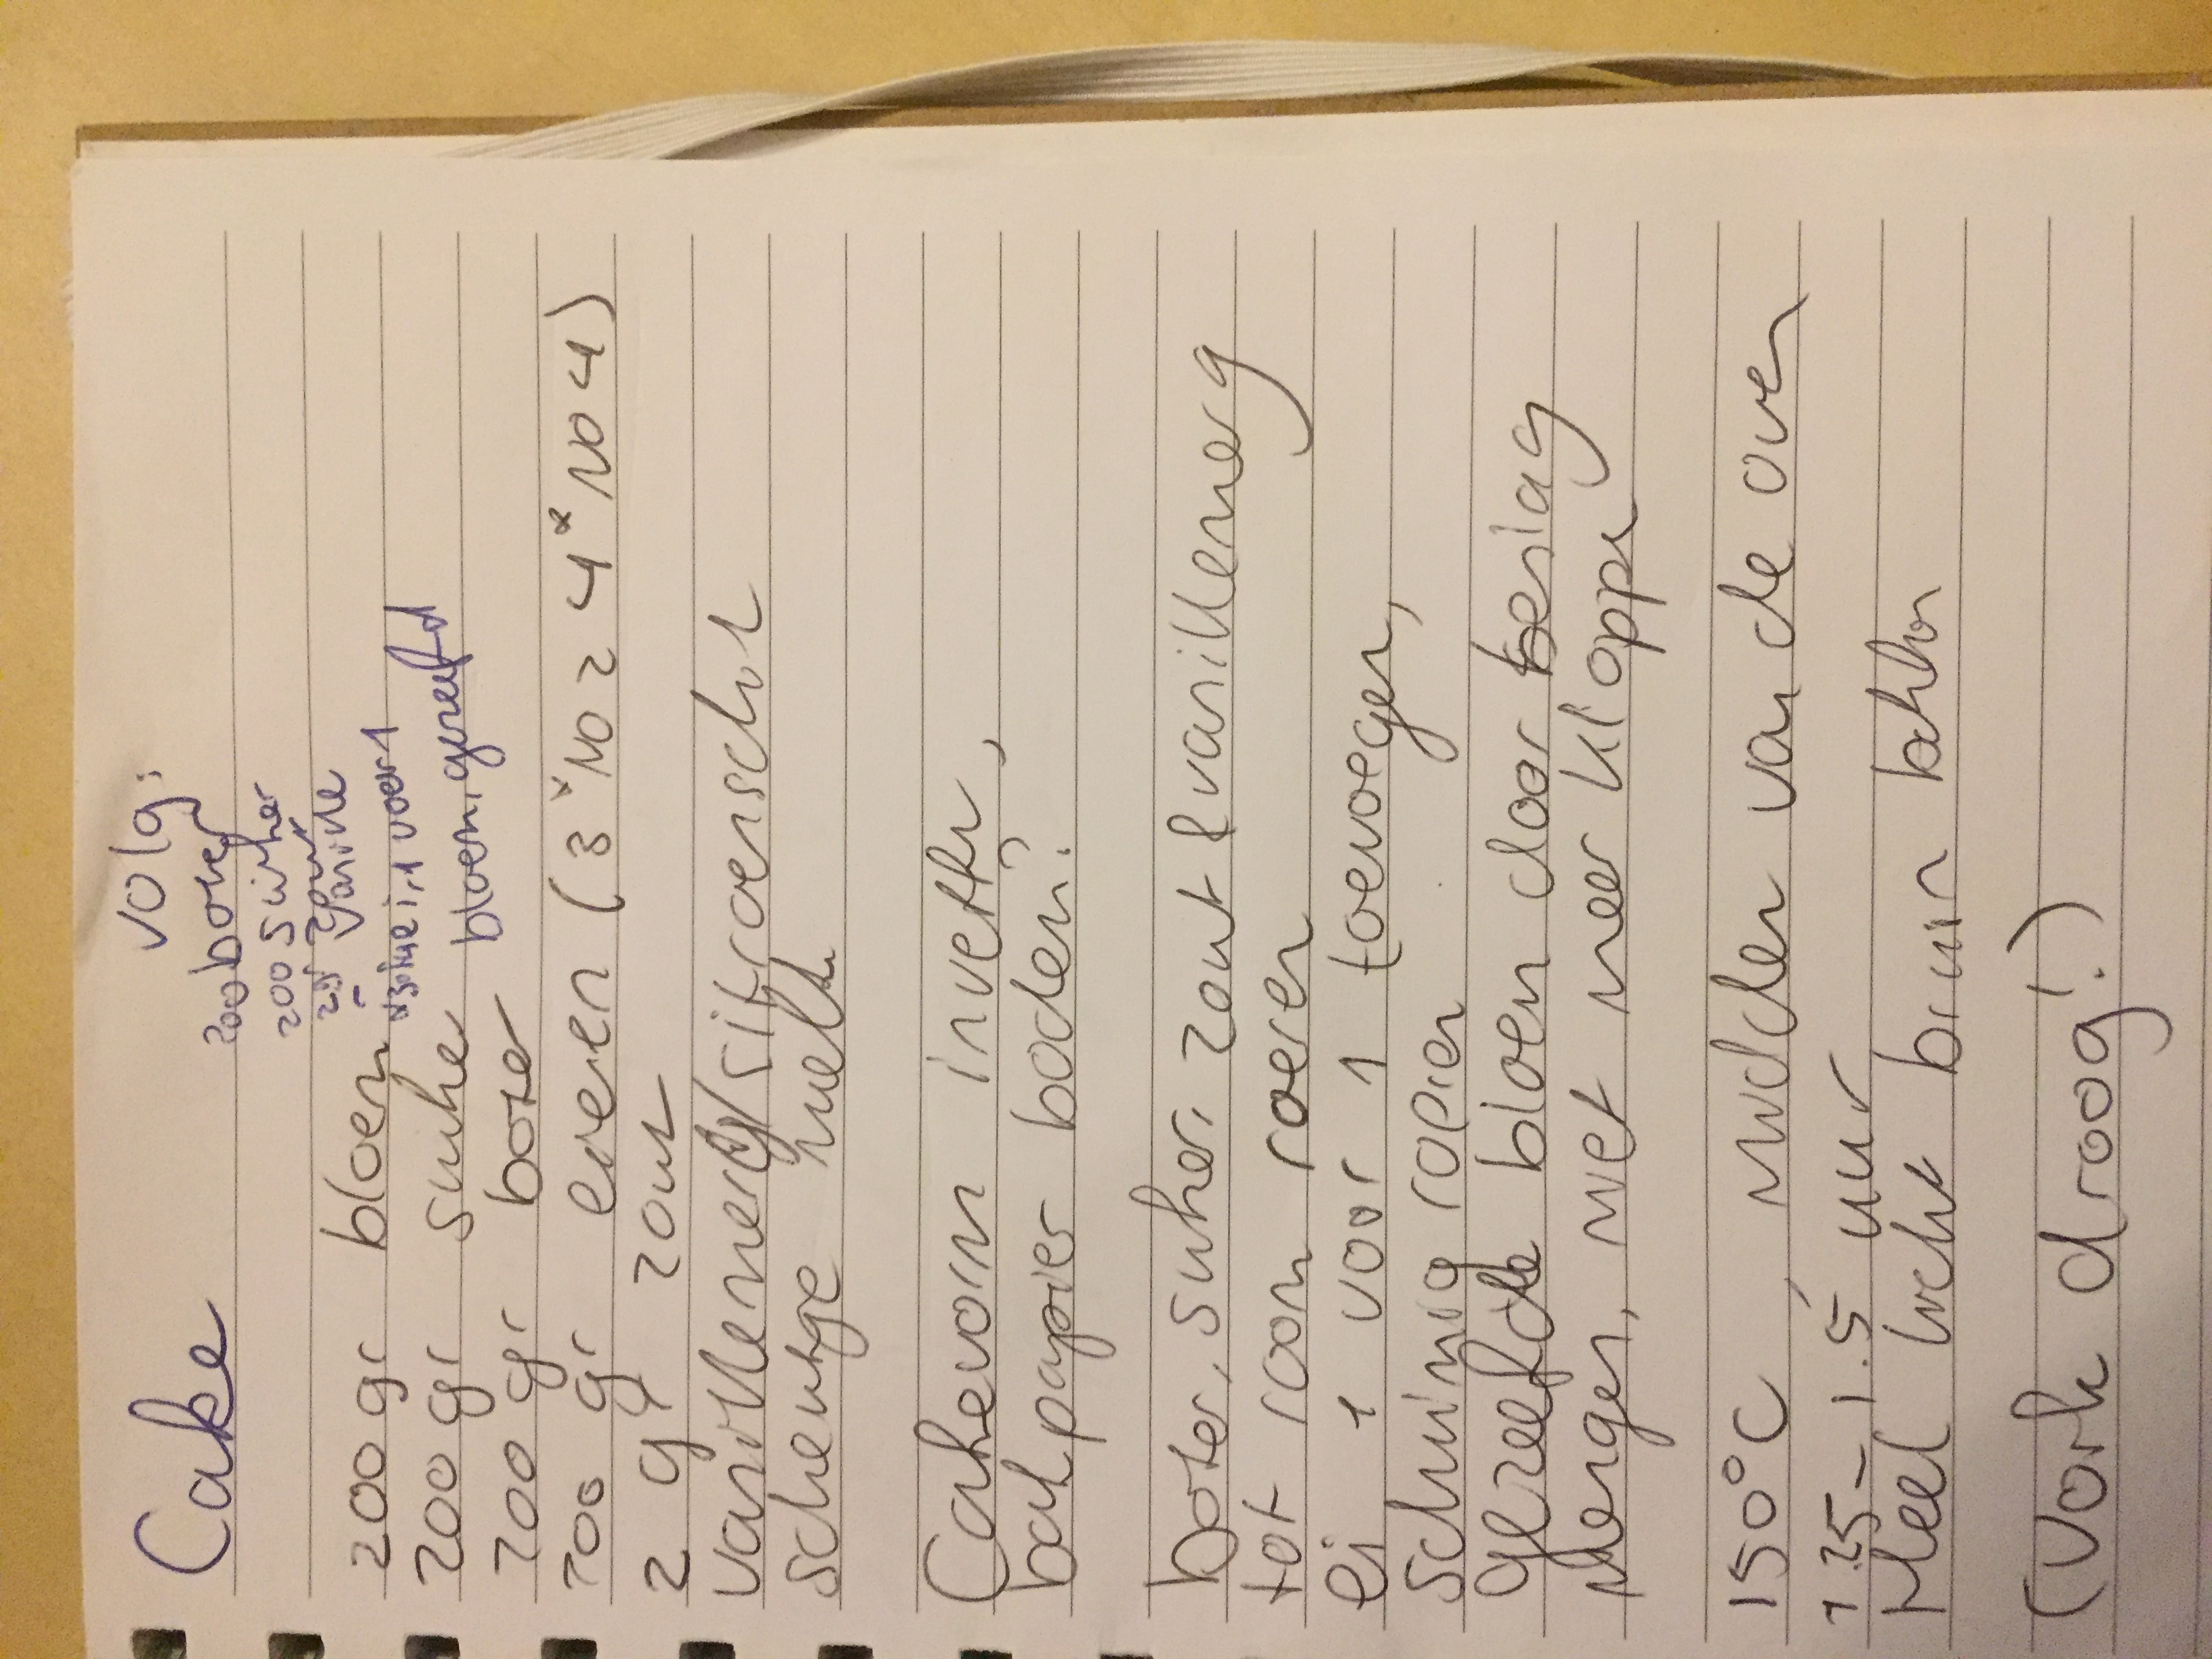 Cake
volg:
200 boter
200 suiker
2gr zout
- vanille
ei, 1 voor 1
bloem, gezeefd
200 gr bloem
200 gr suike
200 gr boter
200 gr eieren (3x NO 2 4x NO 4)
2 gr zout
vanillemerg/sitroenschil
scheutje melk
Cakevorm invetten,
bakpapier bodem?
boter, suiker, zout & vanillemerg
tot room roeren
ei 1 voor 1 toevoegen,
schuimig roeren
gezeefde bloem door beslag
mengen, niet meer kloppen
150°C, midden van de oven
1.25 - 1.5 uur
Heel licht bruin bakken
(Vork droog!)